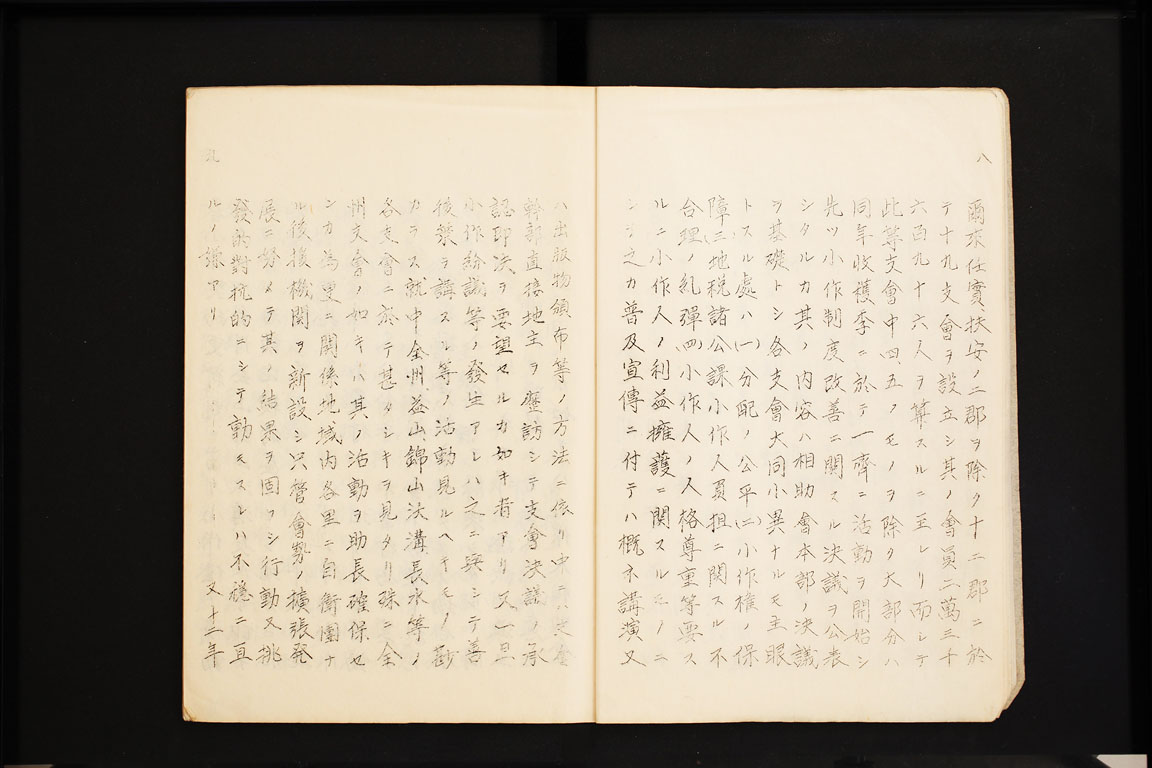 八
爾来任實、扶安ノ二郡ヲ除ク十二郡ニ於
テ十九支會ヲ設立シ其ノ會員二萬三千
六百九十六人ヲ算スルニ至レリ而シテ
此等支會中四、五ノモノヲ除ク大部分ハ
同年收穫季ニ於テ一齊ニ活動ヲ開始シ
先ツ小作制度改善ニ関スル決議ヲ公表
シタルカ其ノ内容ハ相助會本部ノ決議
ヲ基礎トシ各支會大同小異ナルモ主眼
トスル處ハ(一)分配ノ公平(二)小作権ノ保
障(三)地税諸公課小作人負担ニ関スル不
合理ノ糺彈(四)小作人ノ人格尊重等要ス
ルニ小作人ノ利益擁護ニ関スルモノニ
シテ之カ普及宣傳ニ付テハ概ネ講演又
九
ハ出版物頒布等ノ方法ニ依リ中ニハ支會
幹部直接地主ヲ歴訪シテ支會決議ノ承
認即決ヲ要望セルカ如キ者アリ又一旦
小作紛議等ノ發生アレハ之ニ應シテ善
後策ヲ講スル等ノ活動見ルヘキモノ尠
カラス就中全州、益山、錦山、沃溝、長水等ノ
各支會ニ於テ甚タシキヲ見タリ殊ニ全
州支會ノ如キハ其ノ活動ヲ助長確保セ
ンカ為里ニ関係地域内各里ニ自衛團ナ
ル後援機関ヲ新設シ只管會勢ノ擴張発
展ニ努メテ其ノ結果ヲ固フシ行動又挑
發的對抗的ニシテ動モスレハ不穏ニ亘
ルノ嫌アリ 又十二年